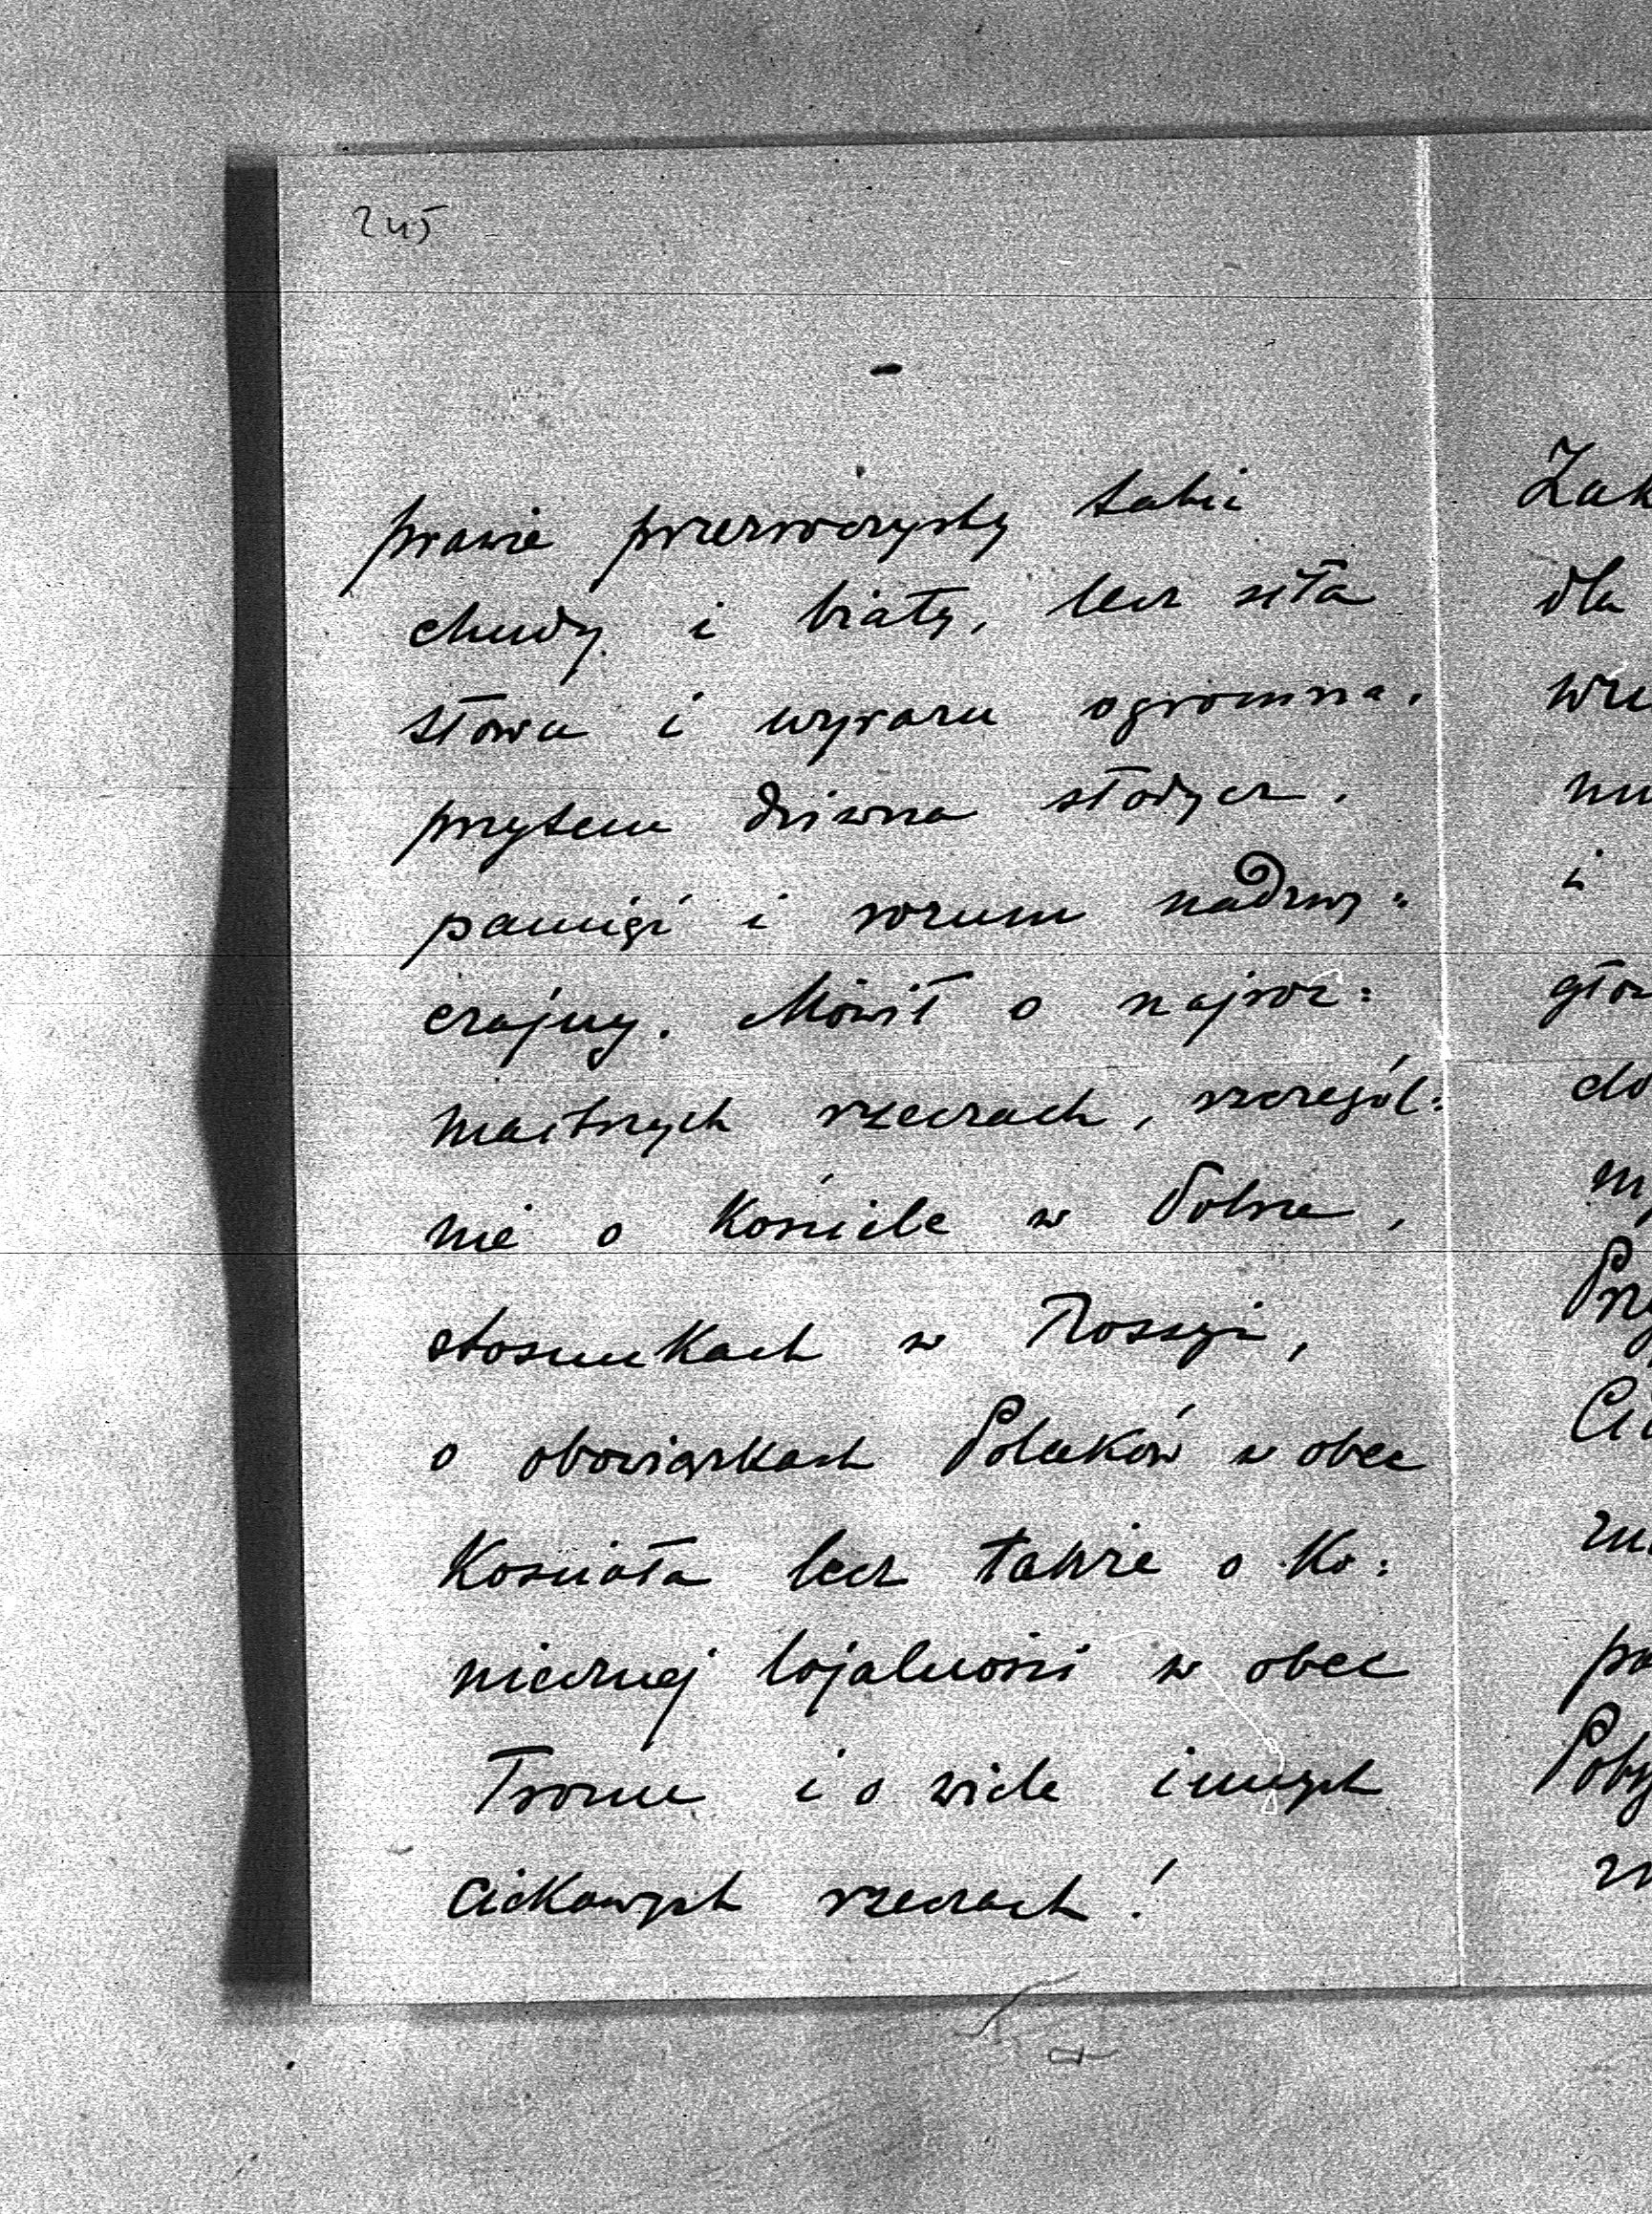 245
prawie przezroczysty takie
chudy i biały, lecz siła
słowa i wyrazu ogromna.
przytem dziwna słodycz.
pamięć i rozum nadzwy=
czajny. Mówił o najroz=
maitszych rzeczach, szczegól=
nie o Kościele w Polsce,
stosunkach w Rossyi,
o obowiązkach Polaków w obec
Kościoła lecz także o Ko=
niecznej lojalności w obec
Tronu i o wiele innych
ciekawych rzeczach!
Zak
dla
i
głow
do
Prz
pa
Poby